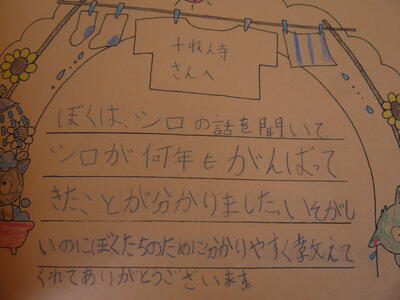 さんへ
ぼくは、シロの話を聞いて
シロが何年もがんばって
きたことが分かりました。いそがし
いのにぼくたちのために分かりやすく教えて
くれてありがとうございます。